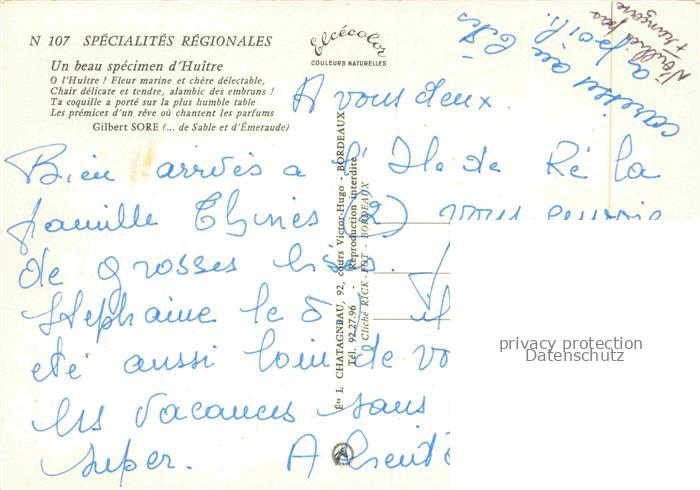 N 107 SPÉCIALITÉS RÉGIONALES
Un beau spécimen d'Huître
O l'Huître ! Fleur marine et chère délectable,
Chair délicate et tendre, alambic des embruns !
Ta coquille a porté sur la plus humble table
Les prémices d'un rêve où chantent les parfums
Gilbert SORE (... de Sable et d'Émeraude)
Elcécolor
COULEURS NATURELLES
A vous deux.
Bien arrivés a l'Ile de Ré la
famille
vous envoie
de grosses bises.
Stephanie le 5
été aussi loin de vo
les vacances sans
super. A bientô
Ets L CHATAGNEAU, 92, cours Victor-Hugo - BORDEAUX
Tél. 92.27.96 - Reproduction interdite
Cliché RICK-FOT - BORDEAUX
privacy protection
Datenschutz